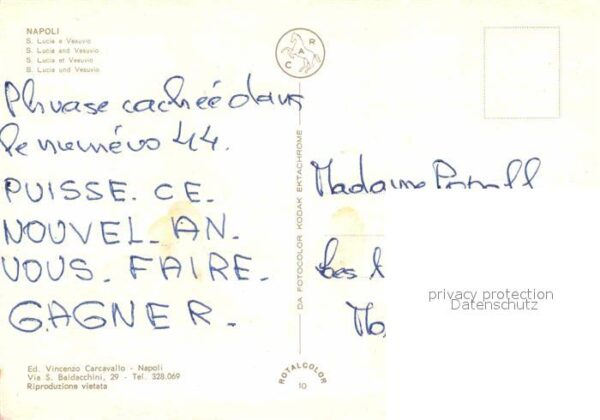 NAPOLI
S. Lucia e Vesuvio
S. Lucia and Vesuvio
S. Lucia et Vesuvio
S. Lucia und Vesuvio
C A R
Phrase cachée dans
le numéro 44.
PUISSE. CE.
NOUVEL. AN.
VOUS. FAIRE.
GAGNER.
Ed. Vincenzo Carcavallo - Napoli
Via S. Baldacchini, 29 - Tel. 328.069
Riproduzione vietata
DA FOTOCOLOR KODAK EKTACHROME
ROTALCOLOR
10
Madame
privacy protection
Datenschutz